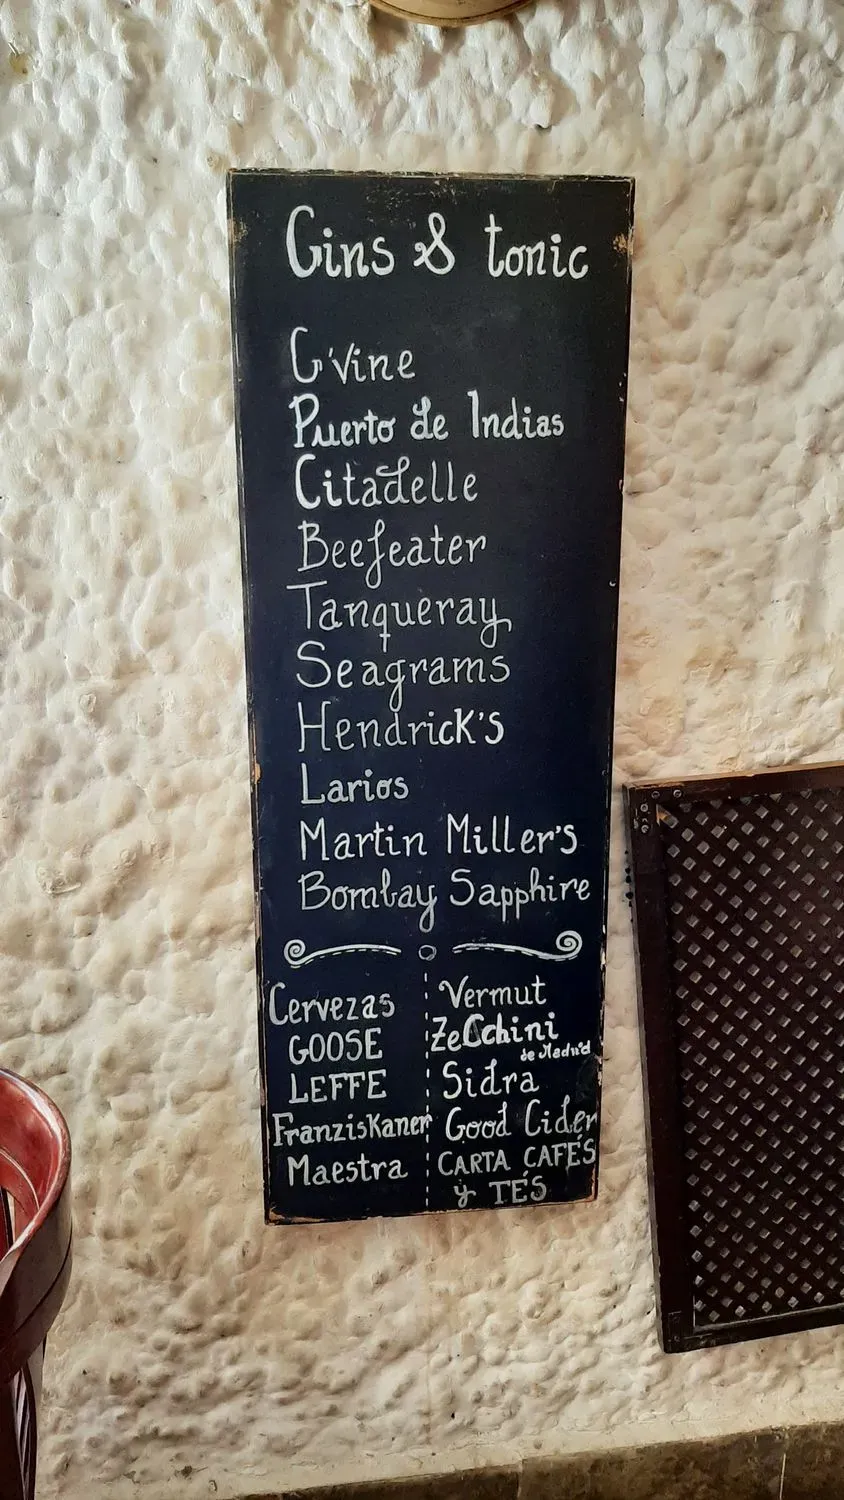 Gins & tonic
G'Vine
Puerto de Indias
Citadelle
Beefeater
Tanqueray
Seagrams
Hendrick's
Larios
Martin Miller's
Bombay Sapphire
Cervezas
GOOSE
LEFFE
Franziskaner
Maestra
Vermut
Zecchini
de Madrid
Sidra
Good Cider
CARTA CAFÉS
y TÉS